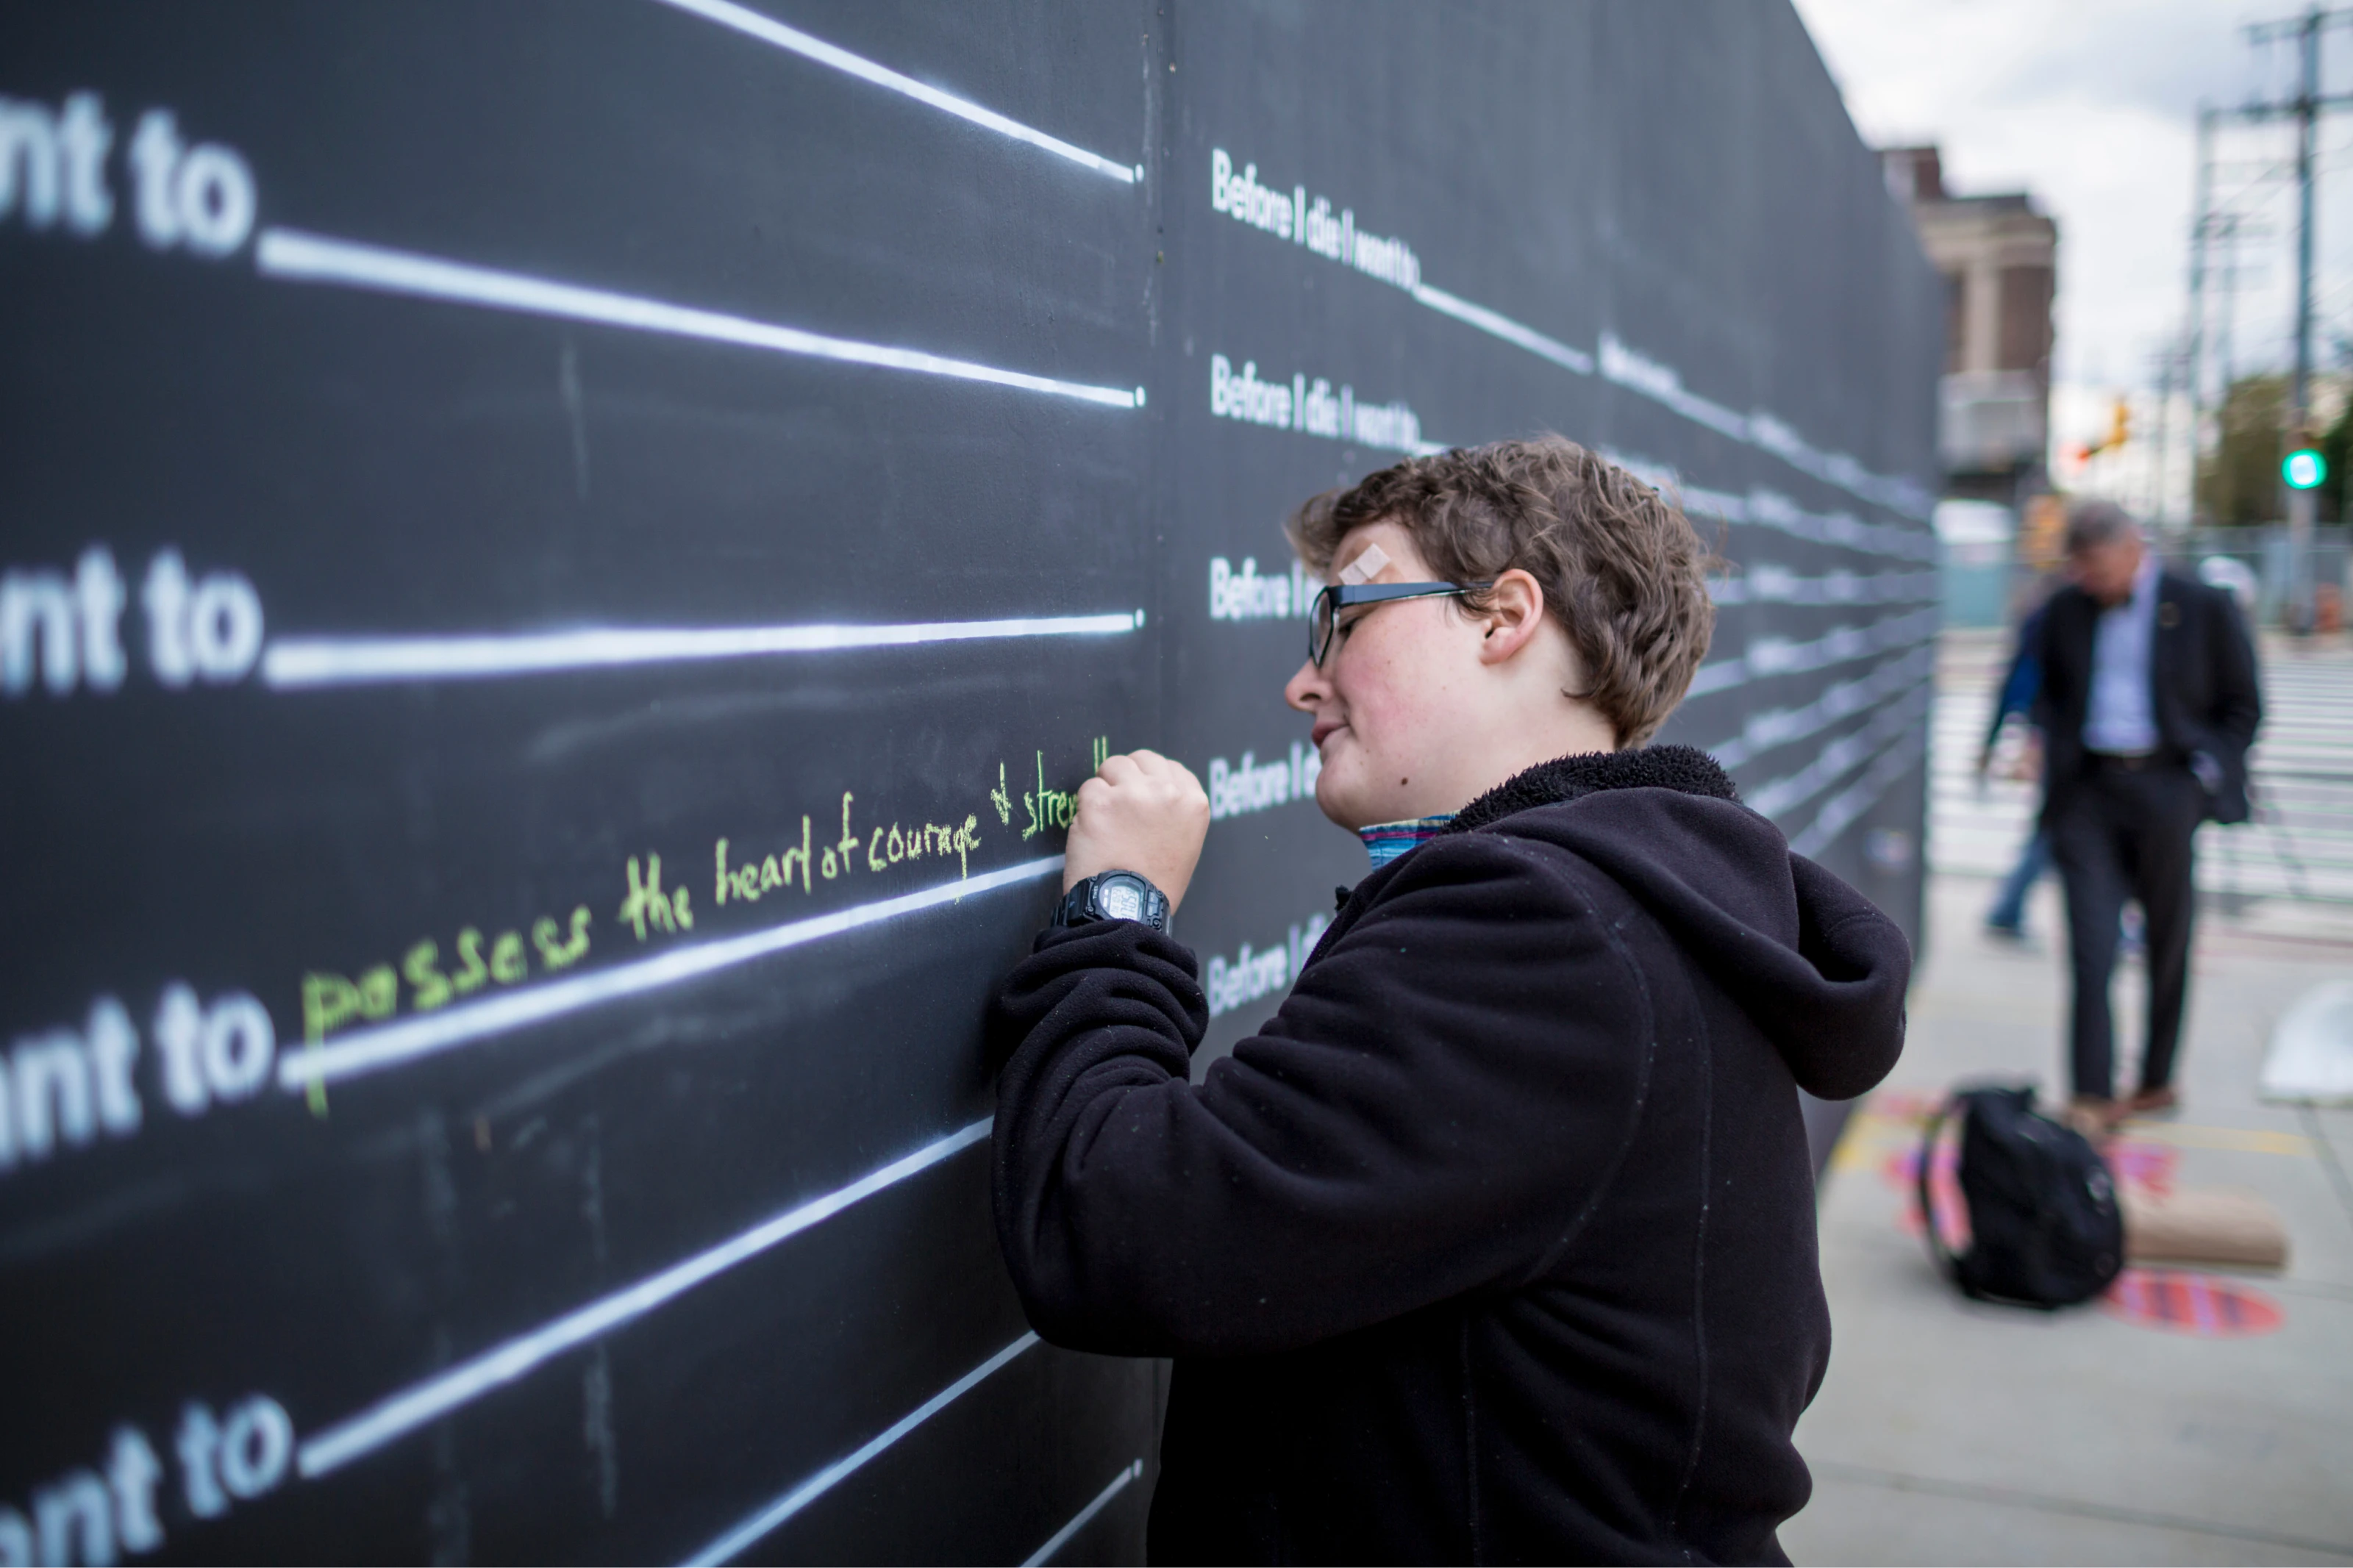 nt to
nt to
ant to possess the heart of courage & stren
ant to
ant to
Before I die I want to
Before I die I want to
Before I
Before I d
Before I